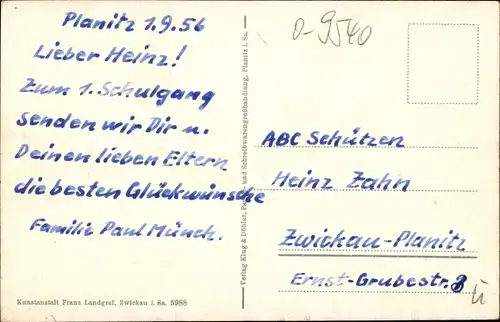 Planitz 1.9.56
Lieber Heinz!
Zum 1. Schulgang
senden wir Dir u.
Deinen lieben Eltern
die besten Glückwünsche
Familie Paul Münch.
Kunstanstalt Franz Landgraf, Zwickau i. Sa. 5988
Verlag Klug & Döhler, und Schreibwarengroßhandlung, Planitz i. Sa.
0-9540
ABC Schützen
Heinz Zahn
Zwickau-Planitz
Ernst-Grubestr. 3